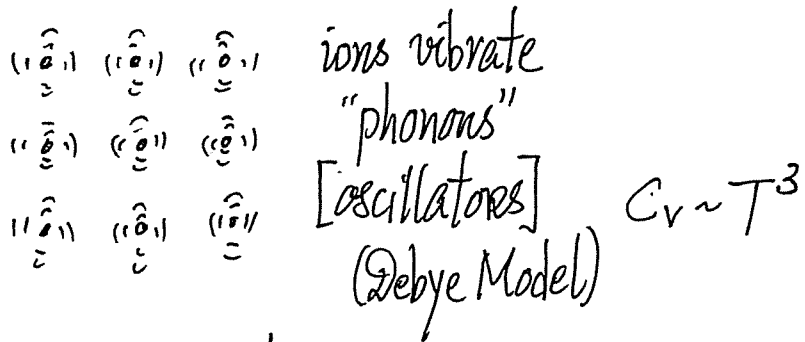 ions vibrate
"phonons"
[oscillators] C_V ~ T^3
(Debye Model)